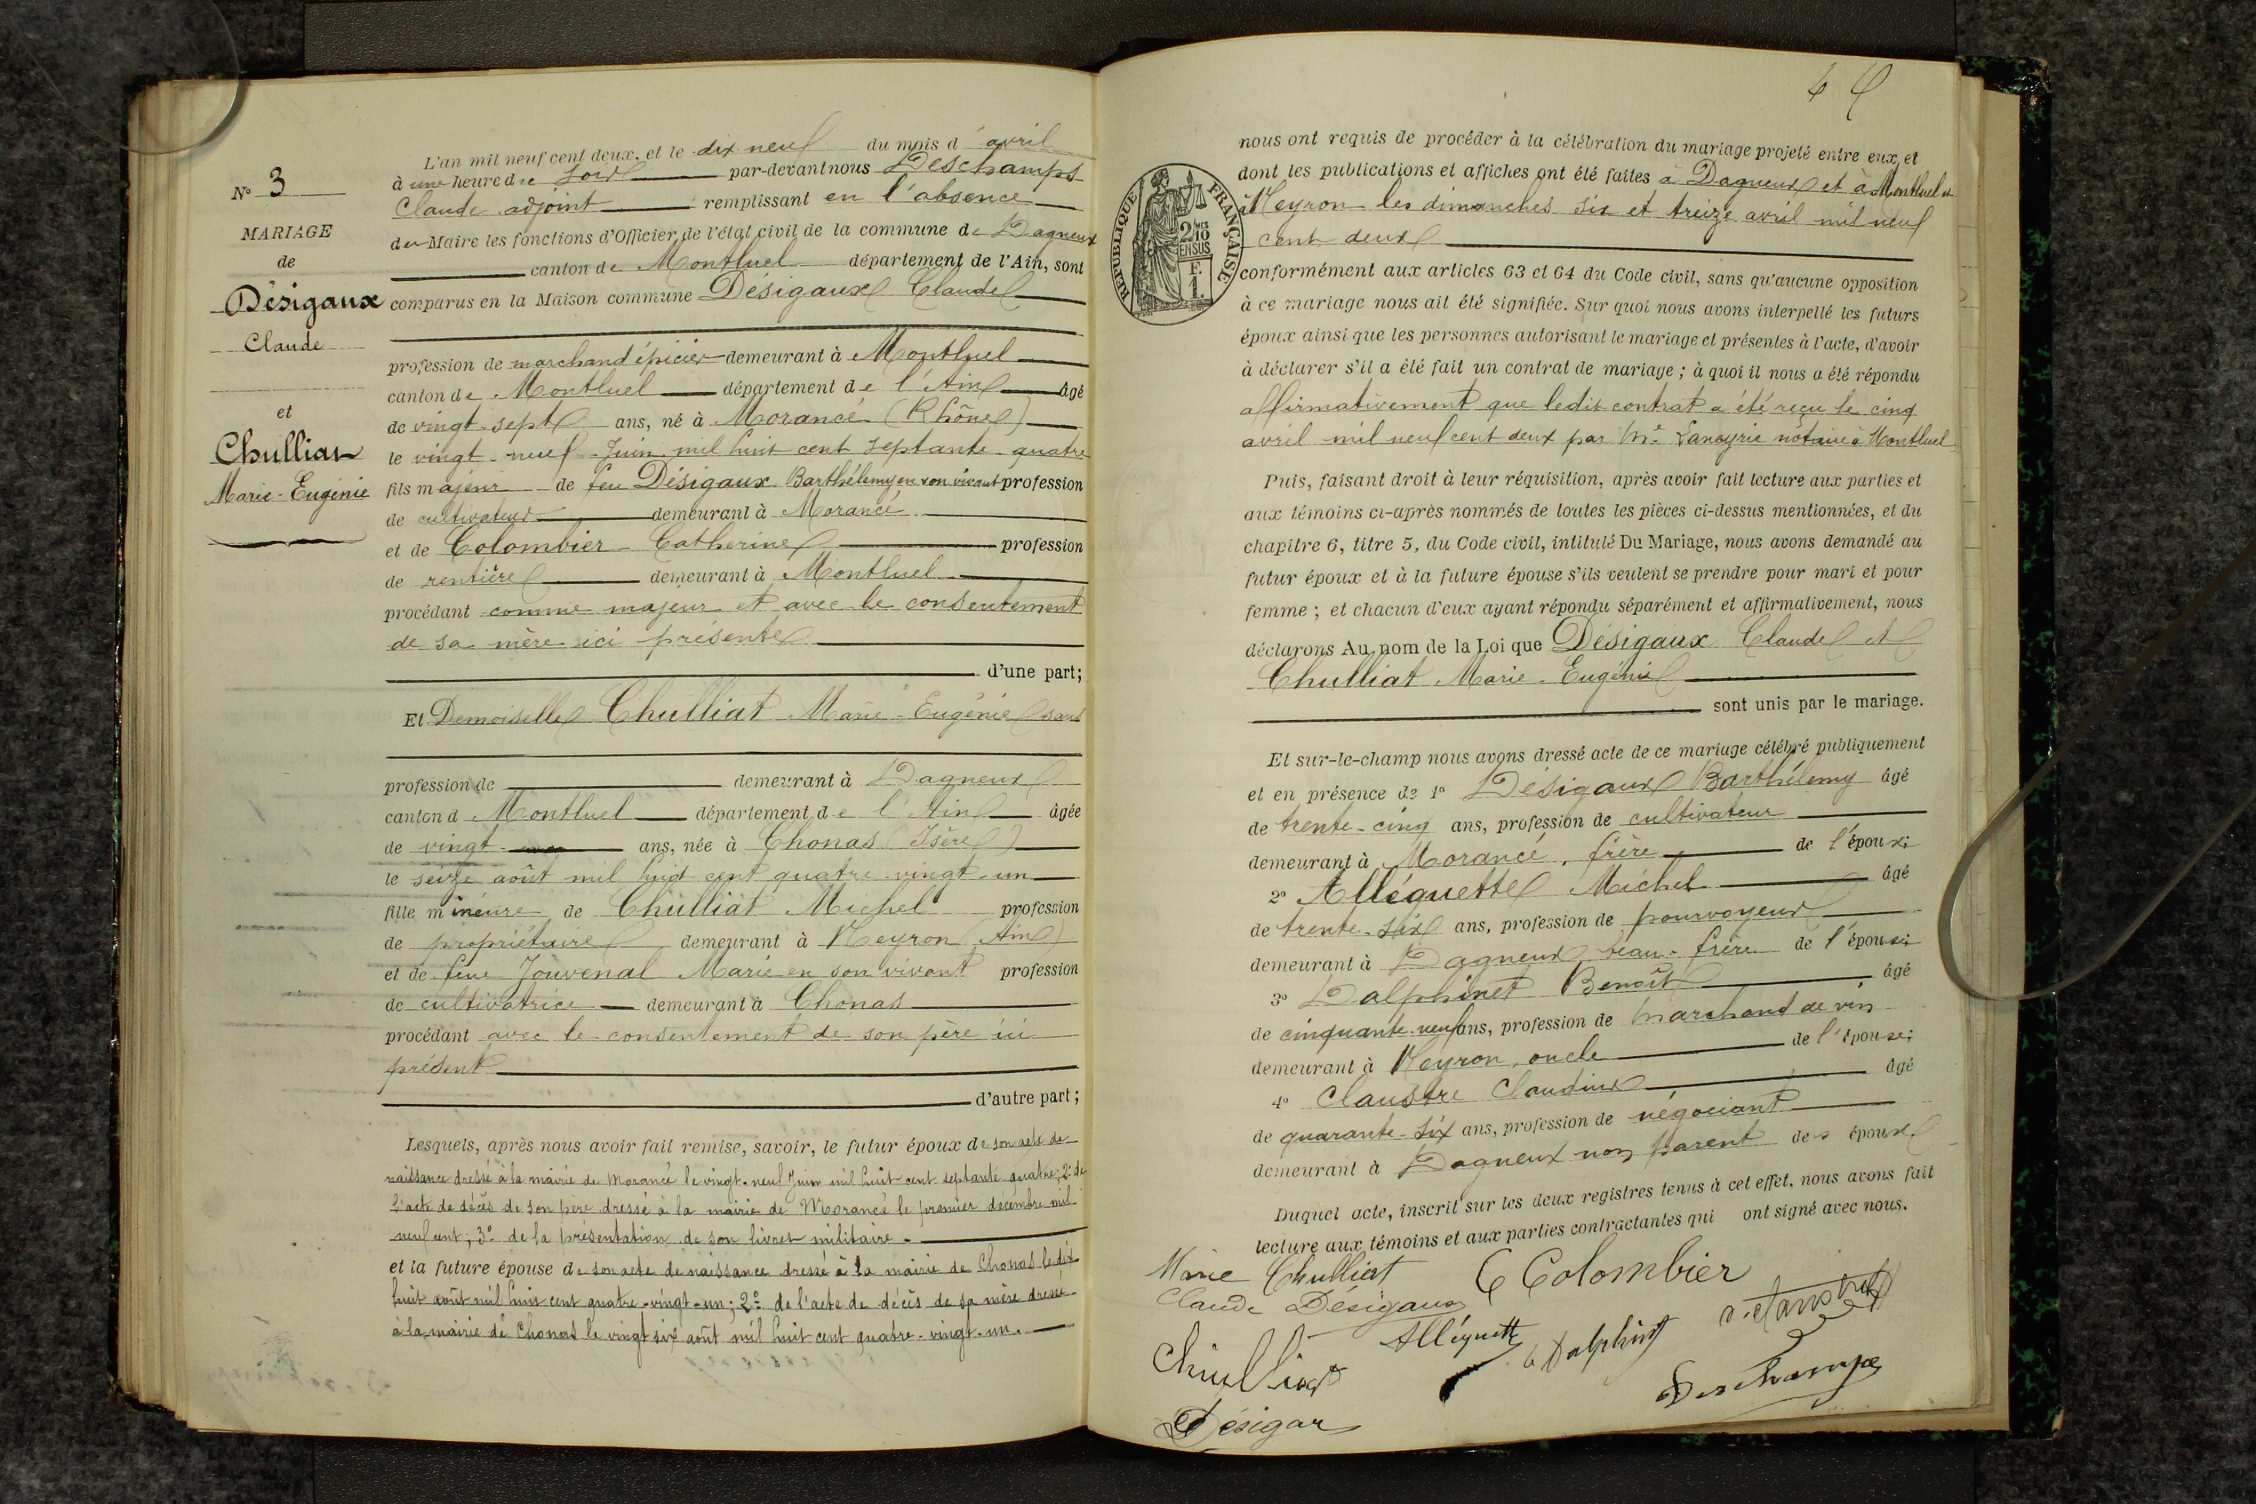 N° 3
MARIAGE
de
Désigaux
Claude
et
Chulliat
Marie-Eugénie
L'an mil neuf cent deux, et le dix neuf du mois d'avril
à une heure de Soir par-devant nous Deschamps
Claude adjoint remplissant en l'absence
du Maire les fonctions d'Officier de l'état civil de la commune de Dagneux
canton de Montluel département de l'Ain, sont
comparus en la Maison commune Désigaux Claude
profession de marchand épicier demeurant à Montluel
canton de Montluel département de l'Ain âgé
de vingt-sept ans, né à Morancé (Rhône)
le vingt-neuf Juin mil huit cent septante-quatre
fils majeur de feu Désigaux Barthélemy en son vivant profession
de cultivateur demeurant à Morancé
et de Colombier Catherine profession
de rentière demeurant à Montluel
procédant comme majeur et avec le consentement
de sa mère ici présente
d'une part;
Et Demoiselle Chulliat Marie-Eugénie sans
profession de demeurant à Dagneux
canton d Montluel département de l'Ain âgée
de vingt ans, née à Chonas (Isère)
le seize août mil huit cent quatre-vingt-un
fille mineure de Chulliat Michel profession
de propriétaire demeurant à Neyron (Ain)
et de feue Jouvenal Marie en son vivant profession
de cultivatrice demeurant à Chonas
procédant avec le consentement de son père ici
présent
d'autre part;
Lesquels, après nous avoir fait remise, savoir, le futur époux de son acte de
naissance dressé à la mairie de Morancé le vingt-neuf Juin mil huit cent septante quatre; 2° de
l'acte de décès de son père dressé à la mairie de Morancé le premier décembre mil
neuf cent; 3° de la présentation de son livret militaire.
et la future épouse de son acte de naissance dressé à la mairie de Chonas le dix
huit août mil huit cent quatre-vingt-un; 2° de l'acte de décès de sa mère dressé
à la mairie de Chonas le vingt six août mil huit cent quatre-vingt-un.
4
RÉPUBLIQUE FRANÇAISE
2/10
EN SUS
F.
1.
nous ont requis de procéder à la célébration du mariage projeté entre eux, et
dont les publications et affiches ont été faites à Dagneux et à Montluel et
à Neyron les dimanches six et treize avril mil neuf
cent deux
conformément aux articles 63 et 64 du Code civil, sans qu'aucune opposition
à ce mariage nous ait été signifiée. Sur quoi nous avons interpellé les futurs
époux ainsi que les personnes autorisant le mariage et présentes à l'acte, d'avoir
à déclarer s'il a été fait un contrat de mariage; à quoi il nous a été répondu
affirmativement que ledit contrat a été reçu le cinq
avril mil neuf cent deux par Me Laneyrie notaire à Montluel
Puis, faisant droit à leur réquisition, après avoir fait lecture aux parties et
aux témoins ci-après nommés de toutes les pièces ci-dessus mentionnées, et du
chapitre 6, titre 5, du Code civil, intitulé Du Mariage, nous avons demandé au
futur époux et à la future épouse s'ils veulent se prendre pour mari et pour
femme; et chacun d'eux ayant répondu séparément et affirmativement, nous
déclarons Au nom de la Loi que Désigaux Claude et
Chulliat Marie-Eugénie
sont unis par le mariage.
Et sur-le-champ nous avons dressé acte de ce mariage célébré publiquement
et en présence de 1° Désigaux Barthélemy âgé
de trente-cinq ans, profession de cultivateur
demeurant à Morancé, frère de l'époux;
2° Alléguette Michel âgé
de trente-six ans, profession de pourvoyeur
demeurant à Dagneux beau-frère de l'épouse;
3° Dalphinet Benoît âgé
de cinquante-neuf ans, profession de marchand de vin
demeurant à Neyron, oncle de l'épouse;
4° Claustre Claudius âgé
de quarante-six ans, profession de négociant
demeurant à Dagneux non parent des époux
Duquel acte, inscrit sur les deux registres tenus à cet effet, nous avons fait
lecture aux témoins et aux parties contractantes qui ont signé avec nous.
Marie Chulliat C Colombier
Claude Désigaux
Alléguette Dalphinet
Chulliat
Deschamps
Désigau